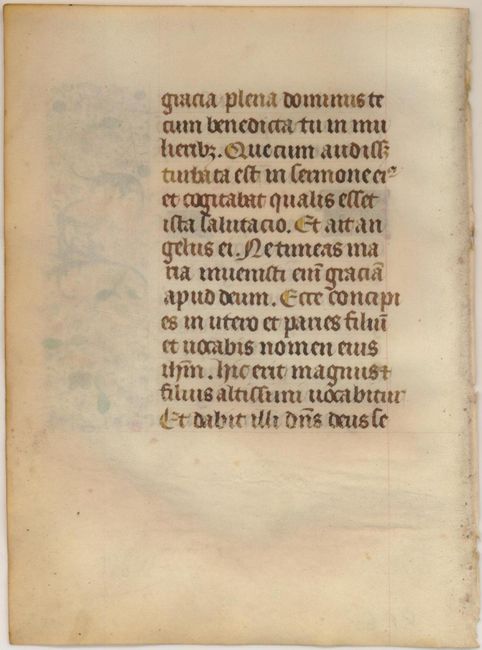 gracia plena dominus te
cum benedicta tu in mu
lieribꝫ. Que cum audissꝫ
turbata est in sermone eiꝰ
et cogitabat qualis esset
ista salutacio. Et ait an
gelus ei. Ne timeas ma
ria inuenisti eni͞ graciā
apud deum. Ecce concipi
es in utero et paries filiū
et uocabis nomen eius
ihm̄. hic erit magnus ⁊
filius altissimi uocabitur
Et dabit illi dn̄s deus se